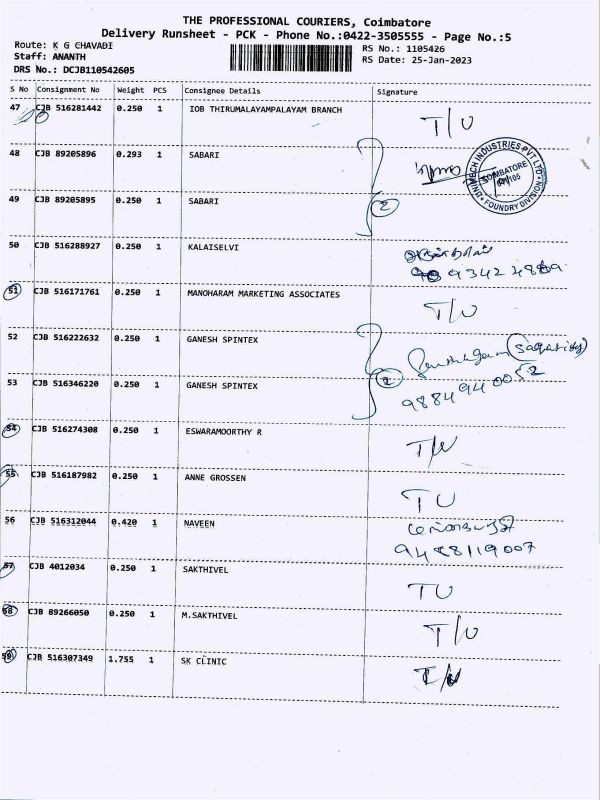 THE PROFESSIONAL COURIERS, Coimbatore
Delivery Runsheet - PCK - Phone No.:0422-3505555 - Page No.:5
Route: K G CHAVADI
RS No.: 1105426
Staff: ANANTH
RS Date: 25-Jan-2023
DRS No.: DCJB110542605
S No Consignment No Weight PCS Consignee Details Signature
47 CJB 516281442 0.250 1 IOB THIRUMALAYAMPALAYAM BRANCH T/U
48 CJB 89205896 0.293 1 SABARI
INDUSTRIES PVT LTD
COIMBATORE
FOUNDRY DIVISION
49 CJB 89205895 0.250 1 SABARI
2
50 CJB 516288927 0.250 1 KALAISELVI
51 CJB 516171761 0.250 1 MANOHARAM MARKETING ASSOCIATES T/U
52 CJB 516222632 0.250 1 GANESH SPINTEX
53 CJB 516346220 0.250 1 GANESH SPINTEX
2
9884940052
54 CJB 516274308 0.250 1 ESWARAMOORTHY R T/U
55 CJB 516187982 0.250 1 ANNE GROSSEN TU
56 CJB 516312044 0.420 1 NAVEEN
9488119007
57 CJB 4012034 0.250 1 SAKTHIVEL TU
58 CJB 89266050 0.250 1 M.SAKTHIVEL T/U
59 CJB 516307349 1.755 1 SK CLINIC T/U